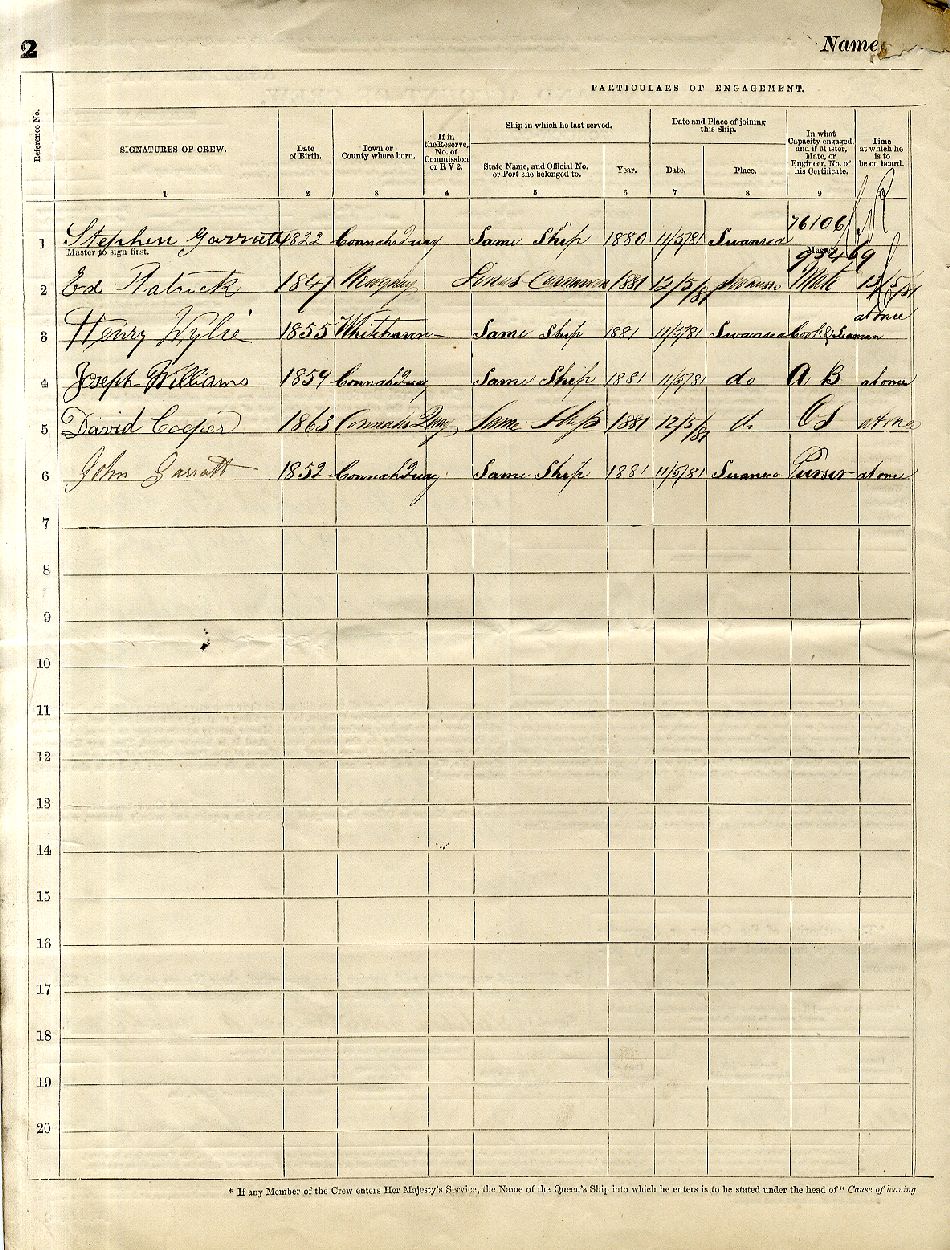 2 Name
PARTICULARS OF ENGAGEMENT.
Reference No.
SIGNATURES OF CREW.
Date of Birth.
Town or County where born.
If in the Reserve, No. of Commission or R V 2.
Ship in which he last served.
State Name, and Official No. or Port she belonged to.
Year.
Date and Place of joining this Ship.
Date.
Place.
In what Capacity engaged, and if Master, Mate, or Engineer, No. of his Certificate.
Time at which he is to be on board.
1 2 3 4 5 6 7 8 9
76106
1 Stephen Garratt 1822 Connahs Quay Same Ship 1880 11/5/81 Swansea
Master to sign first.
93469
2 Ed Patrick 1847 1881 12/5/81 Swansea Mate 13/5/81
at once
3 Henry Wylie 1855 Whitehaven Same Ship 1881 11/5/81 Swansea Cook & Seaman
4 Joseph Williams 1859 Connahs Quay Same Ship 1881 11/5/81 do A B at once
5 David Cooper 1863 Connahs Quay Same Ship 1881 12/5/81 do OS at once
6 John Garratt 1852 Connahs Quay Same Ship 1881 11/5/81 Swansea Purser at once
7
8
9
10
11
12
13
14
15
16
17
18
19
20
* If any Member of the Crew enters Her Majesty's Service, the Name of the Queen's Ship into which he enters is to be stated under the head of "Cause of leaving